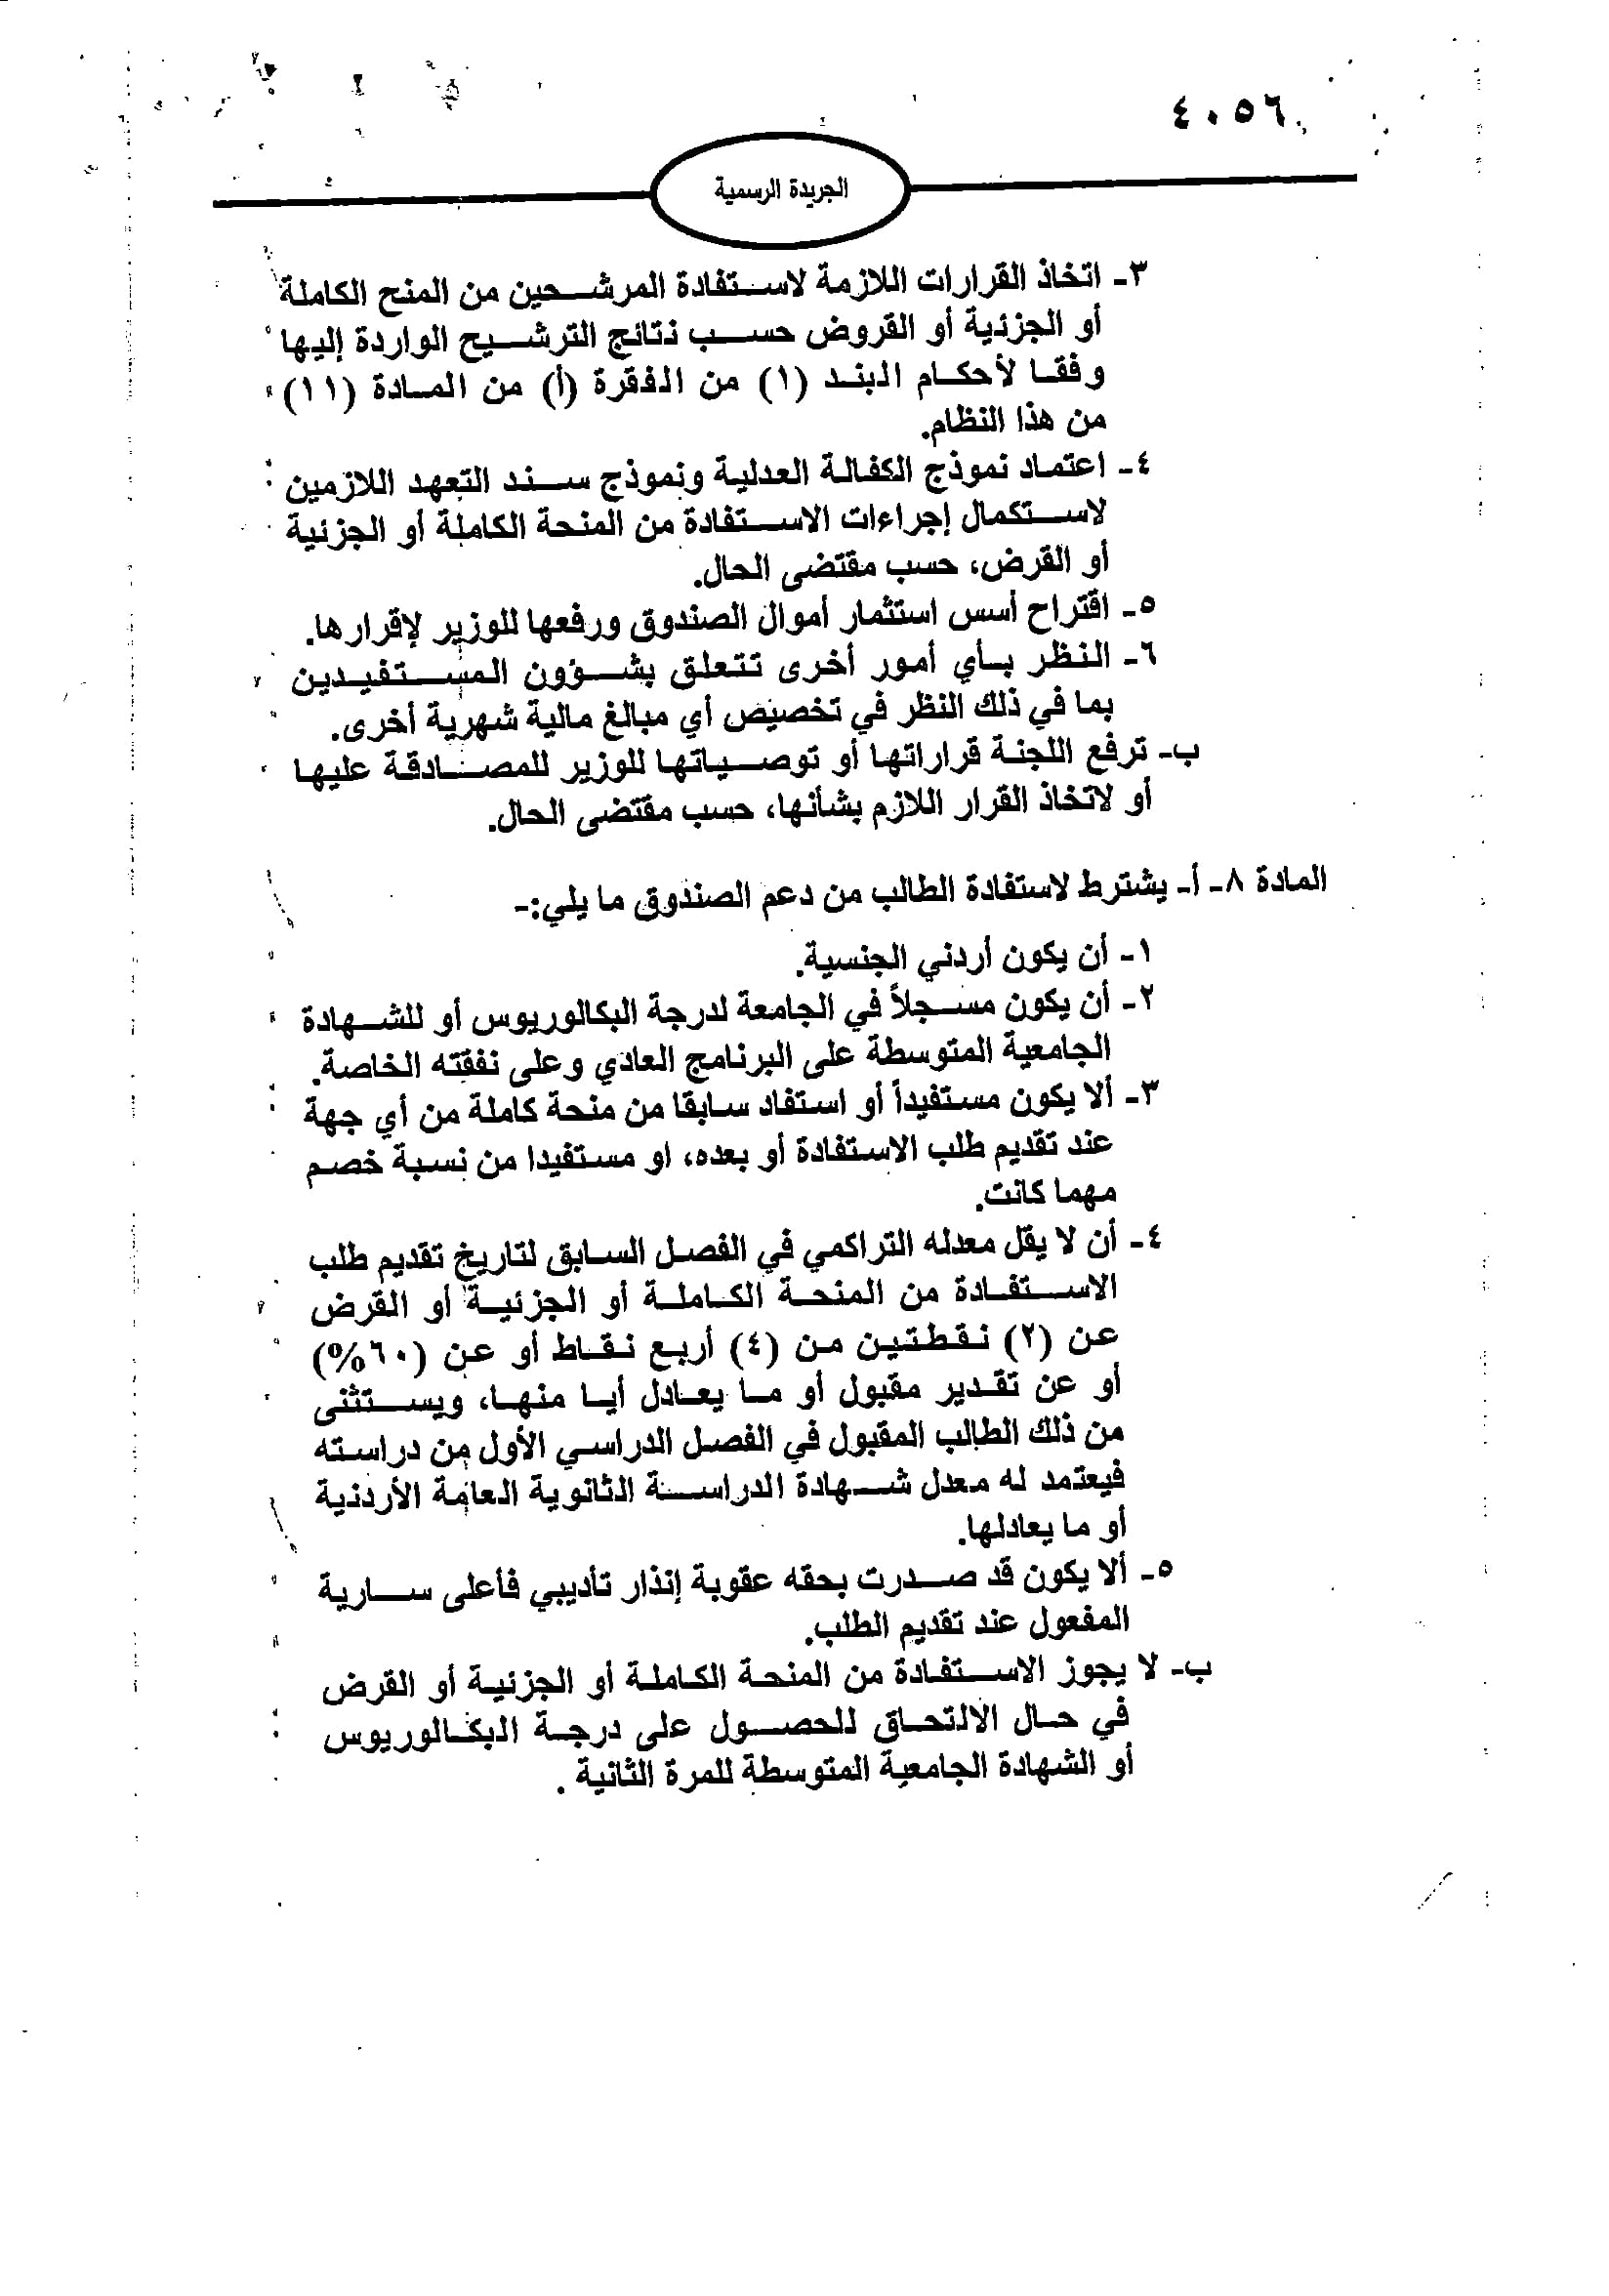 ٤٠٥٦
الجريدة الرسمية
٣- اتخاذ القرارات اللازمة لاستفادة المرشحين من المنح الكاملة
أو الجزئية أو القروض حسب نتائج الترشيح الواردة إليها
وفقا لأحكام البند (١) من الفقرة (أ) من المادة (١١)
من هذا النظام.
٤- اعتماد نموذج الكفالة العدلية ونموذج سند التعهد اللازمين
لاستكمال إجراءات الاستفادة من المنحة الكاملة أو الجزئية
أو القرض، حسب مقتضى الحال.
٥- اقتراح أسس استثمار أموال الصندوق ورفعها للوزير لإقرارها.
٦- النظر بأي أمور أخرى تتعلق بشؤون المستفيدين
بما في ذلك النظر في تخصيص أي مبالغ مالية شهرية أخرى.
ب- ترفع اللجنة قراراتها أو توصياتها للوزير للمصادقة عليها
أو لاتخاذ القرار اللازم بشأنها، حسب مقتضى الحال.
المادة ٨- أ- يشترط لاستفادة الطالب من دعم الصندوق ما يلي:-
١- أن يكون أردني الجنسية.
٢- أن يكون مسجلاً في الجامعة لدرجة البكالوريوس أو للشهادة
الجامعية المتوسطة على البرنامج العادي وعلى نفقته الخاصة.
٣- ألا يكون مستفيداً أو استفاد سابقا من منحة كاملة من أي جهة
عند تقديم طلب الاستفادة أو بعده، او مستفيدا من نسبة خصم
مهما كانت.
٤- أن لا يقل معدله التراكمي في الفصل السابق لتاريخ تقديم طلب
الاستفادة من المنحة الكاملة أو الجزئية أو القرض
عن (٢) نقطتين من (٤) أربع نقاط أو عن (٦٠%)
أو عن تقدير مقبول أو ما يعادل أيا منها، ويستثنى
من ذلك الطالب المقبول في الفصل الدراسي الأول من دراسته
فيعتمد له معدل شهادة الدراسة الثانوية العامة الأردنية
أو ما يعادلها.
٥- ألا يكون قد صدرت بحقه عقوبة إنذار تأديبي فأعلى سارية
المفعول عند تقديم الطلب.
ب- لا يجوز الاستفادة من المنحة الكاملة أو الجزئية أو القرض
في حال الالتحاق للحصول على درجة البكالوريوس
أو الشهادة الجامعية المتوسطة للمرة الثانية .